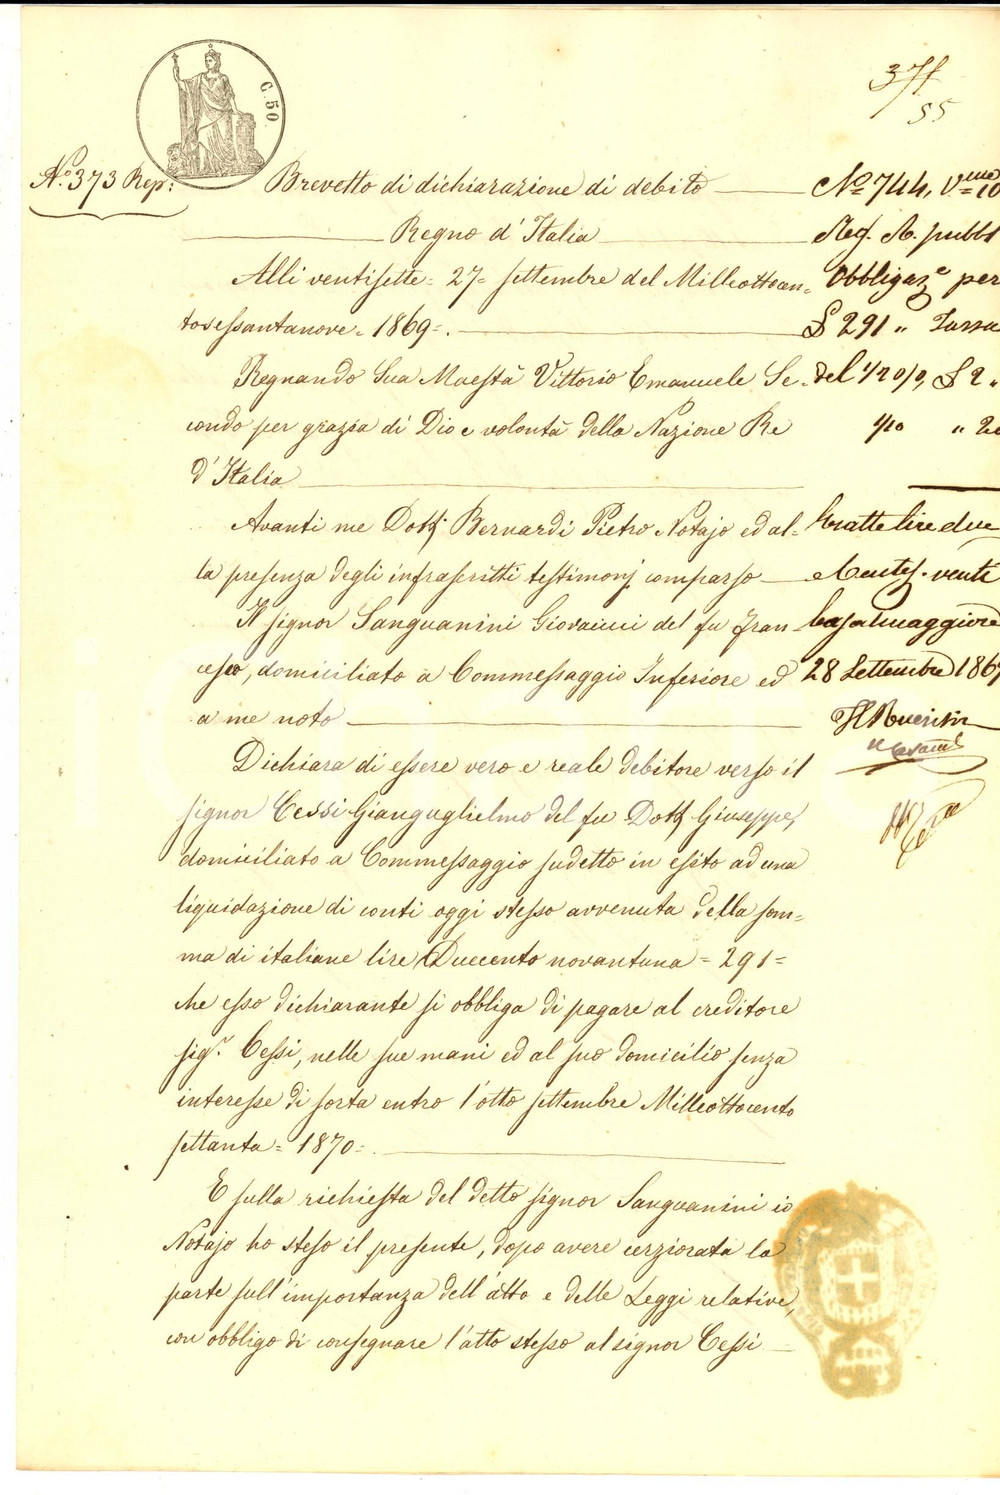 C. 50.
371
55
N.º 373 Rep:
Brevetto di dichiarazione di debito
Regno d'Italia
Alli ventisette = 27 = settembre del Milleottocen=
tosessantanove = 1869 =.
Regnando Sua Maestà Vittorio Emanuele Se=
condo per grazia di Dio e volontà della Nazione Re
d'Italia
Avanti me Dott. Bernardi Pietro Notajo ed al=
la presenza degli infrascritti testimonj comparso
Il signor Sanguanini Giovanni del fu Fran=
cesco, domiciliato a Commessaggio Inferiore ed
a me noto
Dichiara di essere vero e reale debitore verso il
signor Cessi Gianguglielmo del fu Dott. Giuseppe,
domiciliato a Commessaggio sudetto in esito ad una
liquidazione di conti oggi stesso avvenuta della som=
ma di italiane lire Duecento novantuna = 291 =
che esso dichiarante si obbliga di pagare al creditore
sig.r Cessi, nelle sue mani ed al suo domicilio senza
interesse di sorta entro l'otto settembre Milleottocento
settanta = 1870 =.
E sulla richiesta del detto signor Sanguanini io
Notajo ho steso il presente, dopo avere cerziorata la
parte sull'importanza dell'atto e delle Leggi relative,
con obbligo di consegnare l'atto stesso al signor Cessi
Nº 744, V.me 10
Reg. A. pubbl
Obbligaz.e per
£ 291 " Tassa
del 1/2 0/0, £ 2 "
1/10 " 20
Esatte lire due
e Centes. venti
Casalmaggiore
28 Settembre 1869
Il Ricevitore